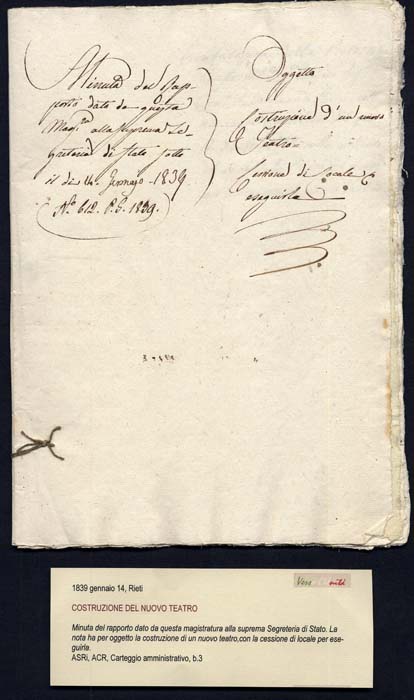 Minuta del Rap-
porto dato da questa
Mag.ra alla suprema Se-
greteria di Stato sotto
il dì 14. Gennajo 1839
(N.o 612. P.G. 1839.)
Oggetto
Costruzione d'un nuovo
Teatro
Cessione di Locale p
eseguirla
1839 gennaio 14, Rieti
COSTRUZIONE DEL NUOVO TEATRO
Minuta del rapporto dato da questa magistratura alla suprema Segreteria di Stato. La
nota ha per oggetto la costruzione di un nuovo teatro,con la cessione di locale per ese-
guirla.
ASRi, ACR, Carteggio amministrativo, b.3